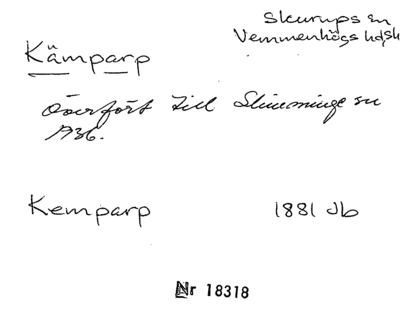 Skurups sn
Vemmenhögs hdsk
Kämparp
Överfört till Slimminge sn
1936.
Kemparp 1881 Jb
Nr 18318